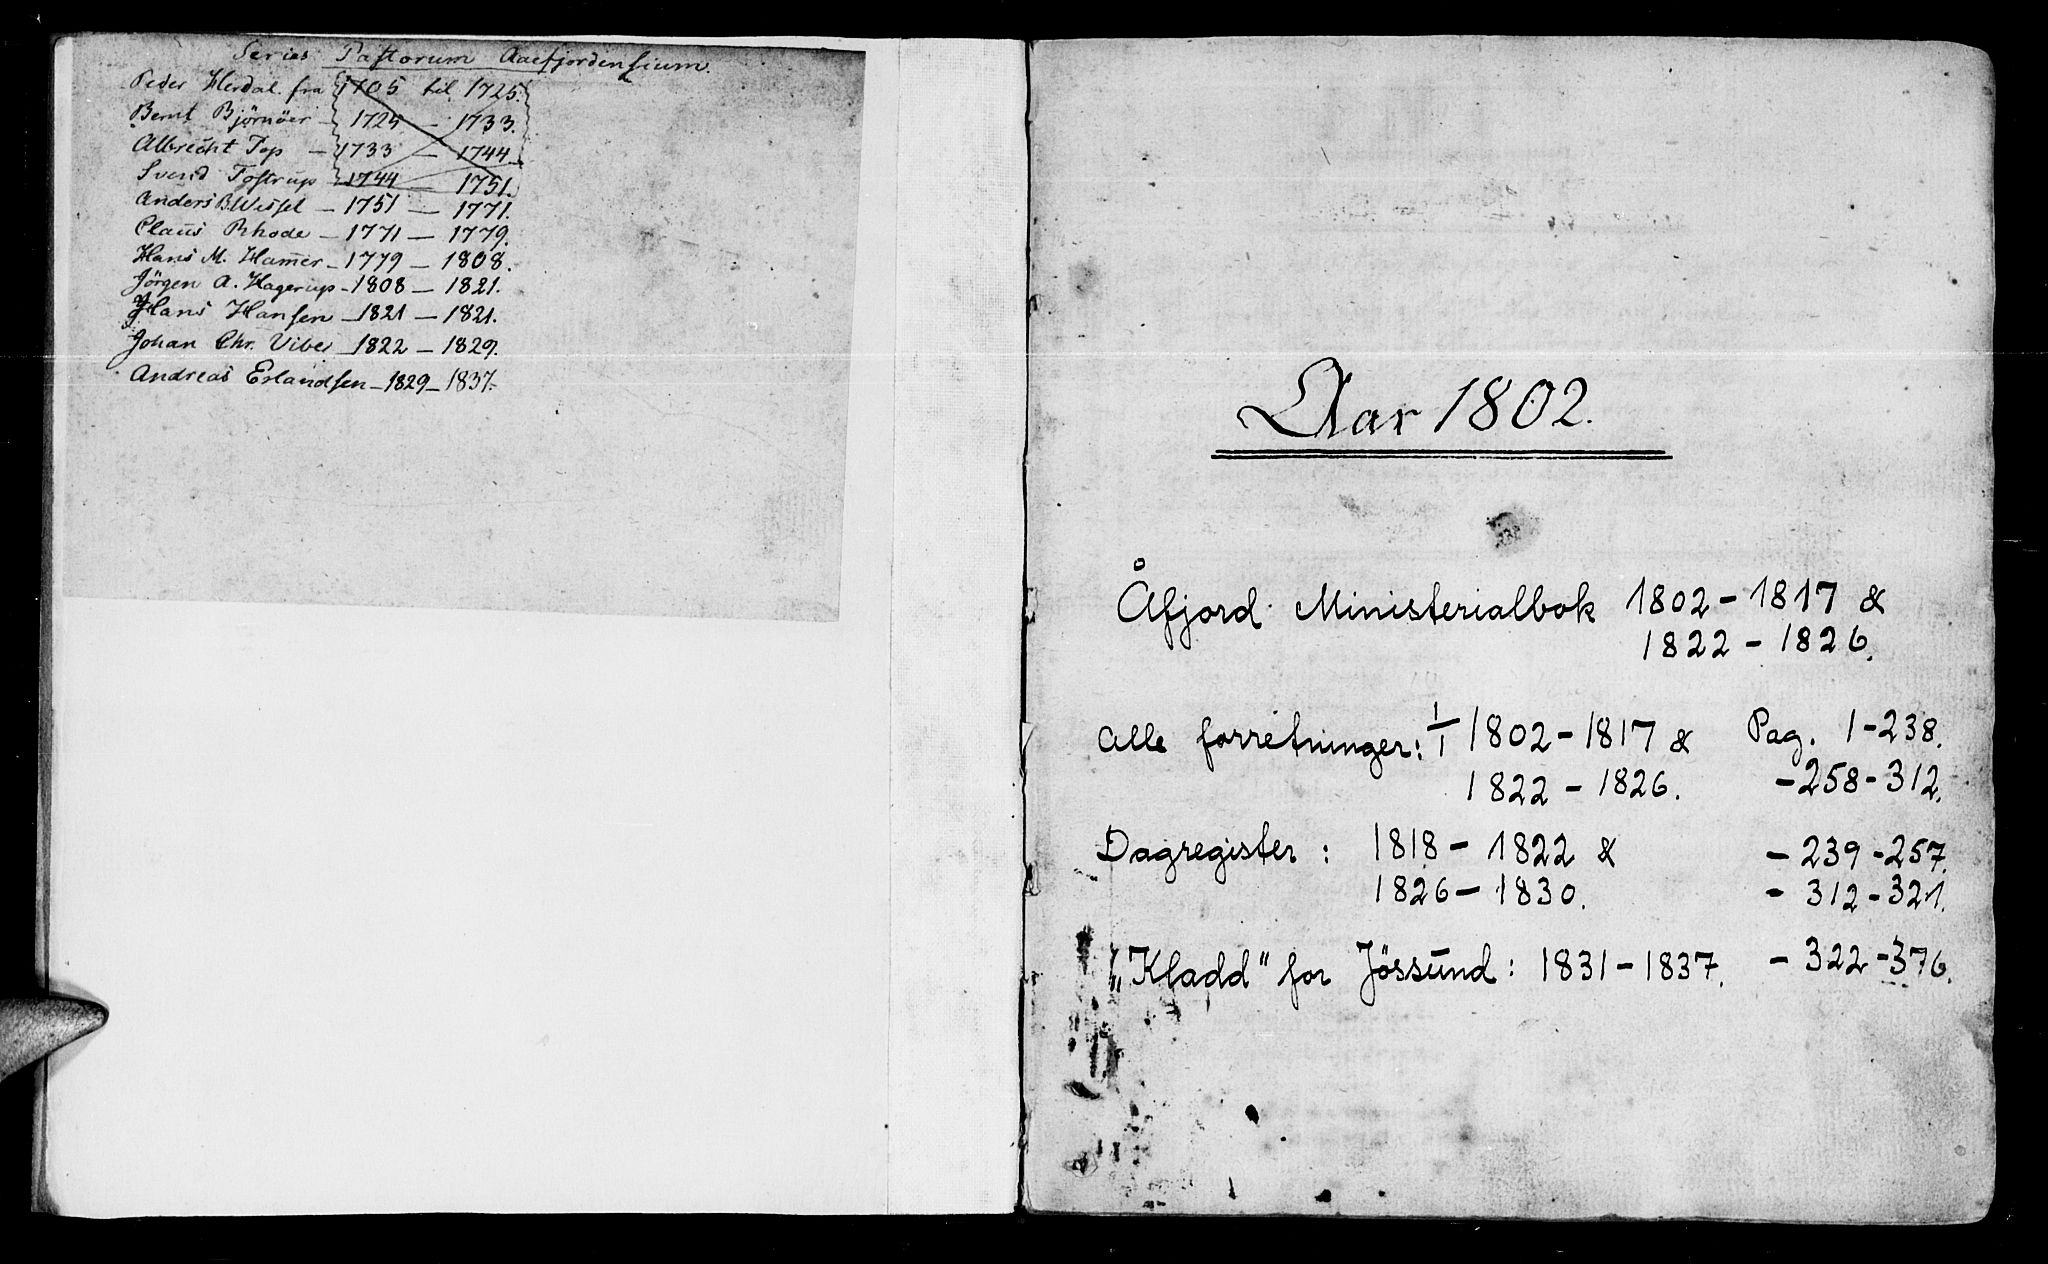 Series Pastorum Aaefjordensium.
Peder Herdal fra 1705 til 1725.
Bernt Björnöer – 1725 – 1733.
Albrecht Top – 1733 – 1744
Svend Tostrup 1744 – 1751.
Anders B. Wessel – 1751 – 1771.
Claus Rhode – 1771 – 1779.
Hans M. Hamer – 1779 – 1808.
Jörgen A. Hagerup – 1808 – 1821.
Hans Hansen – 1821 – 1821.
Johan Chr. Vibe – 1822 – 1829.
Andreas Erlandsen – 1829 – 1837.
Aar 1802.
Åfjord Ministerialbok 1802 – 1817 &
1822 – 1826.
Alle forretninger: 1/1 1802 – 1817 & Pag. 1 – 238.
1822 – 1826. – 258 – 312.
Dagregister: 1818 – 1822 & – 239 – 257.
1826 – 1830. – 312 – 321.
„Kladd" for Jössund: 1831 – 1837. – 322 – 376.